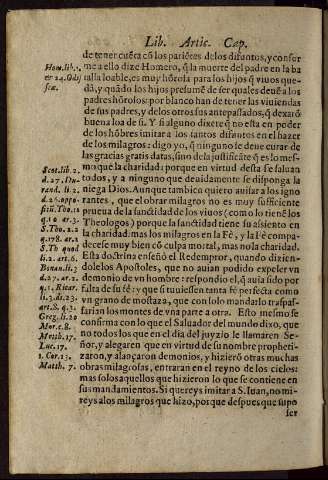 Lib. Artic. Cap.
de tener cuẽta cõ los pariẽtes de los difuntos, y confor
me a ello dize Homero, q̃ la muerte del padre en la ba
talla loable, es muy hõrosa para los hijos q̃ viuos que-
dã, y quãdo los hijos presumẽ de ser quales deuẽ a los
padres hõrosos: por blanco han de tener las viuiendas
de sus padres, y de los otros sus antepassados, q̃ dexarõ
buena loa de si. Y si alguno dixere q̃ no esta en poder
de los hõbres imitar a los santos difuntos en el hazer
de los milagros: digo yo, q̃ ninguno se deue curar de
las gracias gratis datas, sino de la justificãte q̃ es lo mes-
mo que la charidad: porque en virtud desta se saluan
todos, y a ninguno que deuidamente se disponga la
niega Dios. Aunque tambien quiero auisar a los igno
rantes, que el obrar milagros no es muy suficiente
prueua de la sanctidad de los viuos (como lo tienẽ los
Theologos) porque la sanctidad tiene su assiento en
la charidad: mas los milagros en la Fè, y la Fè compa-
decese muy bien cõ culpa mortal, mas no la charidad.
Esta doctrina enseñò el Redemptor, quando dizien-
dole los Apostoles, que no auian podido expeler vn
demonio de vn hombre: respondio el, q̃ auia sido por
falta de su fè: y que si tuuiessen tanta fè perfecta como
vn grano de mostaza, que con solo mandarlo traspas-
sarian los montes de vna parte a otra. Esto mesmo se
confirma con lo que el Saluador del mundo dixo, que
no todos los que en el dia del juyzio le llamaren Se-
ñor, y alegaren que en virtud de su nombre propheti-
zaron, y alançaron demonios, y hizierõ otras muchas
obras milagrosas, entraran en el reyno de los cielos:
mas solos aquellos que hizieron lo que se contiene en
sus mandamientos. Si quereys imitar a S. Iuan, no mi-
reys a los milagros que hizo, porque despues que supo
ser
Hom. lib. 1.
et 24. Odis
seæ.
Scot. lib. 2.
d. 27. Du-
rand. li 2.
d. 26. oppo-
situ. Tho. 12
q. 10 ar. 3.
S. Tho. 2. 2
q. 178. ar. 2
S. Th quod
li. 2. art. 6.
Bonau. li. 3
d. 27. ar. 2.
q. 1. Ricar.
li. 3. ds. 23.
art. 8. q. 3.
Greg. li. 20
Mor. c. 8.
Matth. 17.
Luc. 17.
1. Cor. 13.
Matth. 7.